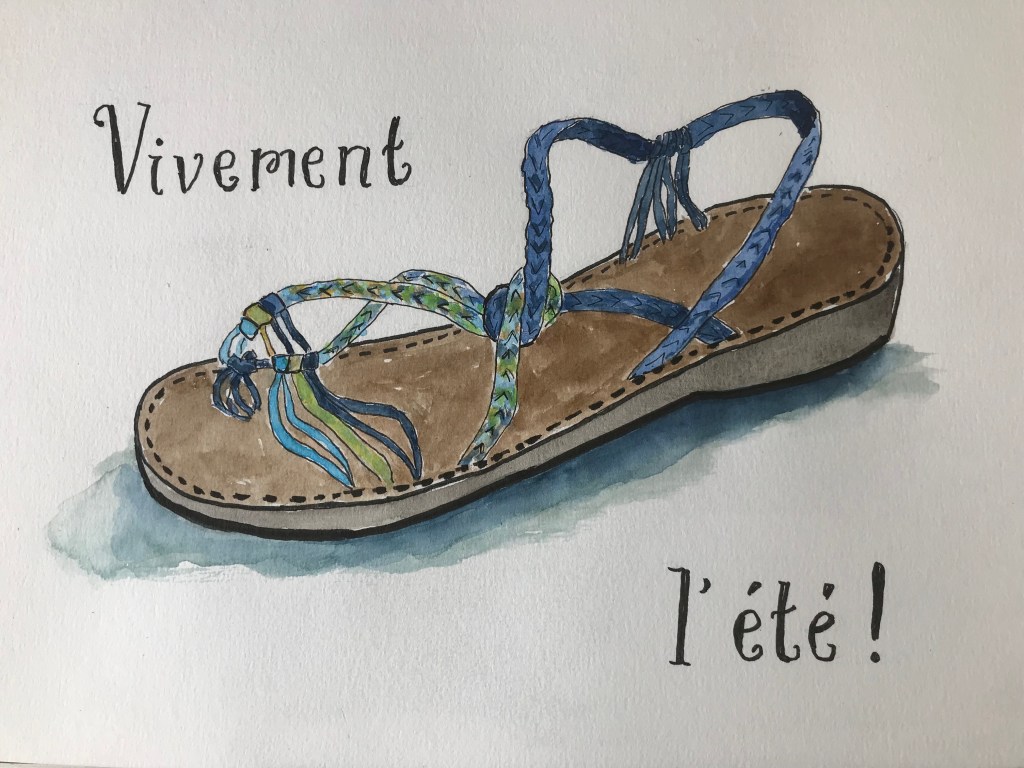 Vivement
l'été !